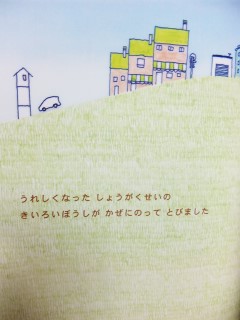 うれしくなった しょうがくせいの
きいろいぼうしが かぜにのって とびました